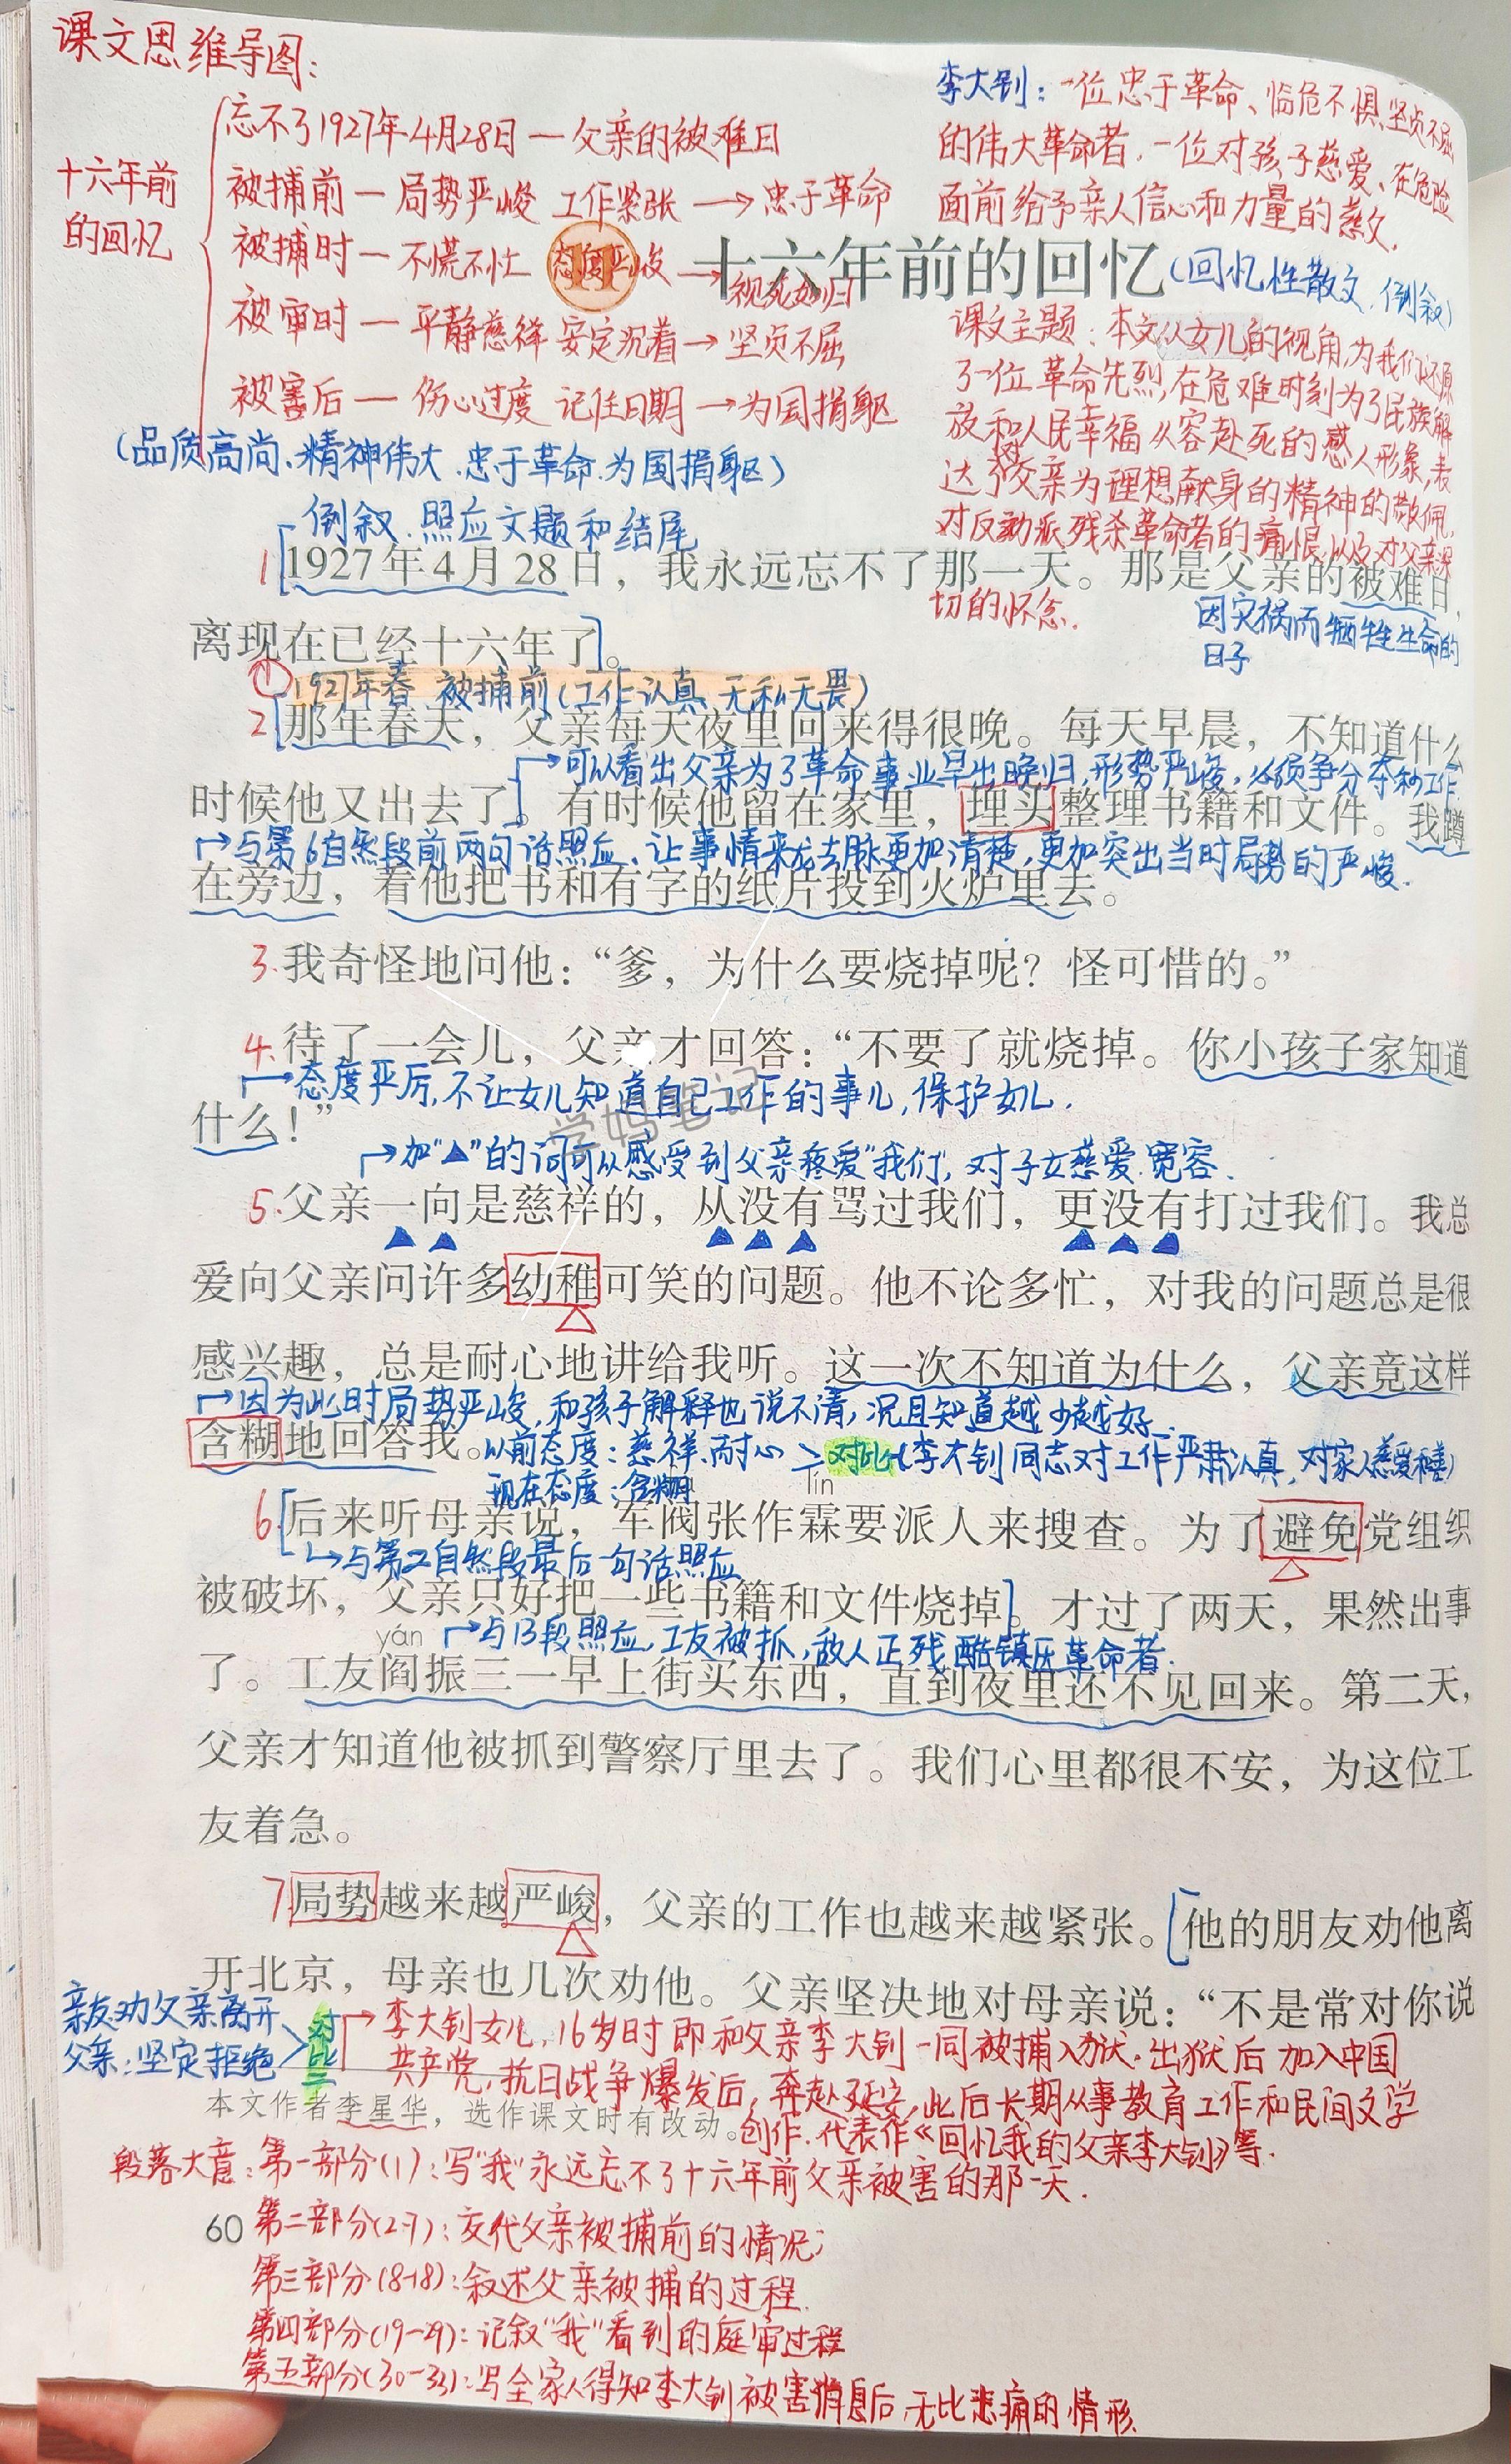 课文思维导图:
十六年前
的回忆
忘不了1927年4月28日—父亲的被难日
被捕前—局势严峻 工作紧张→忠于革命
被捕时—不慌不忙 态度严峻→视死如归
被审时—平静慈祥 安定沉着→坚贞不屈
被害后—伤心过度 记住日期→为国捐躯
(品质高尚、精神伟大、忠于革命、为国捐躯)
李大钊:一位忠于革命、临危不惧、坚贞不屈
的伟大革命者,一位对孩子慈爱、在危险
面前给予亲人信心和力量的慈父.
11 十六年前的回忆(回忆性散文、倒叙)
课文主题:本文从女儿的视角,为我们还原
了一位革命先烈,在危难时刻为了民族解
放和人民幸福从容赴死的感人形象,表
达了对父亲为理想献身的精神的敬佩,
对反动派残杀革命者的痛恨,以及对父亲深
切的怀念.
倒叙.照应文题和结尾
1 1927年4月28日，我永远忘不了那一天。那是父亲的被难日，
因灾祸而牺牲生命的
日子
离现在已经十六年了。
1927年春 被捕前(工作认真、无私无畏)
2 那年春天，父亲每天夜里回来得很晚。每天早晨，不知道什么
→可以看出父亲为了革命事业早出晚归,形势严峻,必须争分夺秒工作.
时候他又出去了。有时候他留在家里，埋头整理书籍和文件。我蹲
→与第6自然段前两句话照应,让事情来龙去脉更加清楚,更加突出当时局势的严峻.
在旁边，看他把书和有字的纸片投到火炉里去。
3.我奇怪地问他：“爹，为什么要烧掉呢？怪可惜的。”
4.待了一会儿，父亲才回答：“不要了就烧掉。你小孩子家知道
→态度严厉,不让女儿知道自己工作的事儿,保护女儿.
什么！”
学妈笔记
→加“▲”的词可以感受到父亲疼爱“我们”,对子女慈爱.宽容.
5.父亲一向是慈祥的，从没有骂过我们，更没有打过我们。我总
爱向父亲问许多幼稚可笑的问题。他不论多忙，对我的问题总是很
感兴趣，总是耐心地讲给我听。这一次不知道为什么，父亲竟这样
→因为此时局势严峻,和孩子解释也说不清,况且知道越少越好.
含糊地回答我。以前态度:慈祥.耐心 > 对比(李大钊同志对工作严肃认真,对家人慈爱和善)
现在态度:含糊
lín
6.后来听母亲说，军阀张作霖要派人来搜查。为了避免党组织
↳与第2自然段最后一句话照应
被破坏，父亲只好把一些书籍和文件烧掉。才过了两天，果然出事
yán →与13段照应,工友被抓,敌人正残酷镇压革命者.
了。工友阎振三一早上街买东西，直到夜里还不见回来。第二天，
父亲才知道他被抓到警察厅里去了。我们心里都很不安，为这位工
友着急。
7局势越来越严峻，父亲的工作也越来越紧张。他的朋友劝他离
开北京，母亲也几次劝他。父亲坚决地对母亲说：“不是常对你说
亲友:劝父亲离开
父亲:坚定拒绝
对比
→李大钊女儿,16岁时即和父亲李大钊一同被捕入狱.出狱后加入中国
共产党,抗日战争爆发后,奔赴延安,此后长期从事教育工作和民间文学
本文作者李星华，选作课文时有改动。
创作.代表作《回忆我的父亲李大钊》等.
段落大意:第一部分(1):写“我”永远忘不了十六年前父亲被害的那一天.
60
第二部分(2-7):交代父亲被捕前的情况;
第三部分(8-18):叙述父亲被捕的过程.
第四部分(19-29):记叙“我”看到的庭审过程
第五部分(30-33):写全家人得知李大钊被害消息后,无比悲痛的情形.